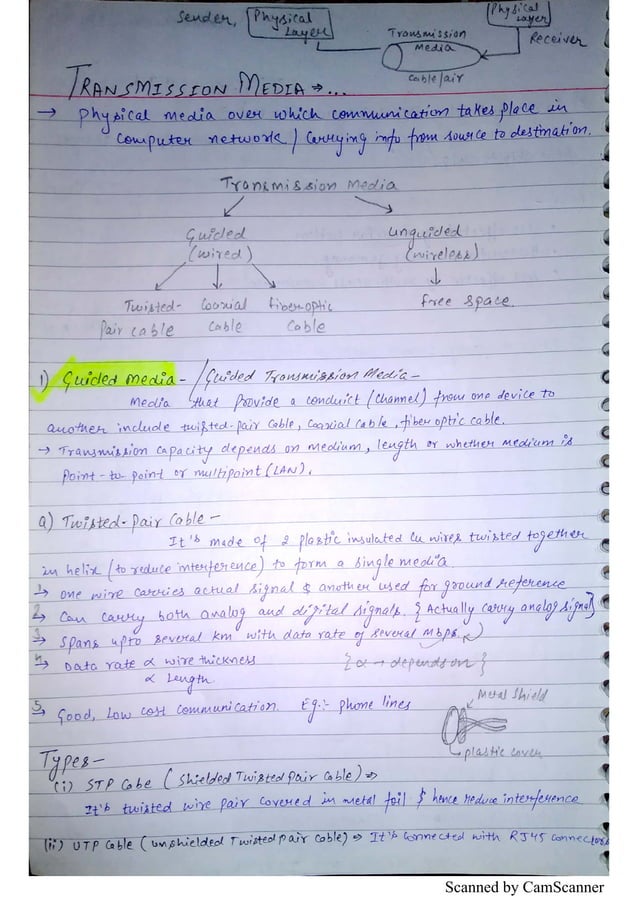 Sender, Physical Layer
Transmission Media
cable/air
Physical Layer
Receiver
TRANSMISSION MEDIA ⇒...
→ Physical media over which communication takes place in
computer network / Carrying info from source to destination.
Transmission Media
Guided (wired)
Unguided (wireless)
Twisted-Pair cable
Coaxial Cable
Fiber optic Cable
free space
1) Guided Media - / Guided Transmission Media -
Media that Provide a conduict (channel) from one device to
another include twisted-pair cable, coaxial cable, fiber optic cable.
→ Transmission capacity depends on medium, length or whether medium is
Point-to-point or multipoint (LAN).
a) Twisted-Pair Cable -
It's made of 2 plastic insulated Cu wires twisted together
in helix (to reduce interference) to form a single media.
1→ one wire carries actual signal & another used for ground reference
2→ Can carry both analog and digital signals. {Actually carry analog signal}
3→ Spans upto several km with data rate of several Mbps.
4→ Data rate ∝ wire thickness {∝ → depends on}
∝ Length.
5→ Good, Low cost communication. Eg:- phone lines
Metal Shield
plastic cover
Types -
(i) STP Cabe (Shielded Twisted Pair Cable) ⇒
It's twisted wire pair covered in metal foil & hence reduce interference
(ii) UTP Cable (unshielded Twisted pair Cable) ⇒ It's connected with RJ45 connectors
Scanned by CamScanner